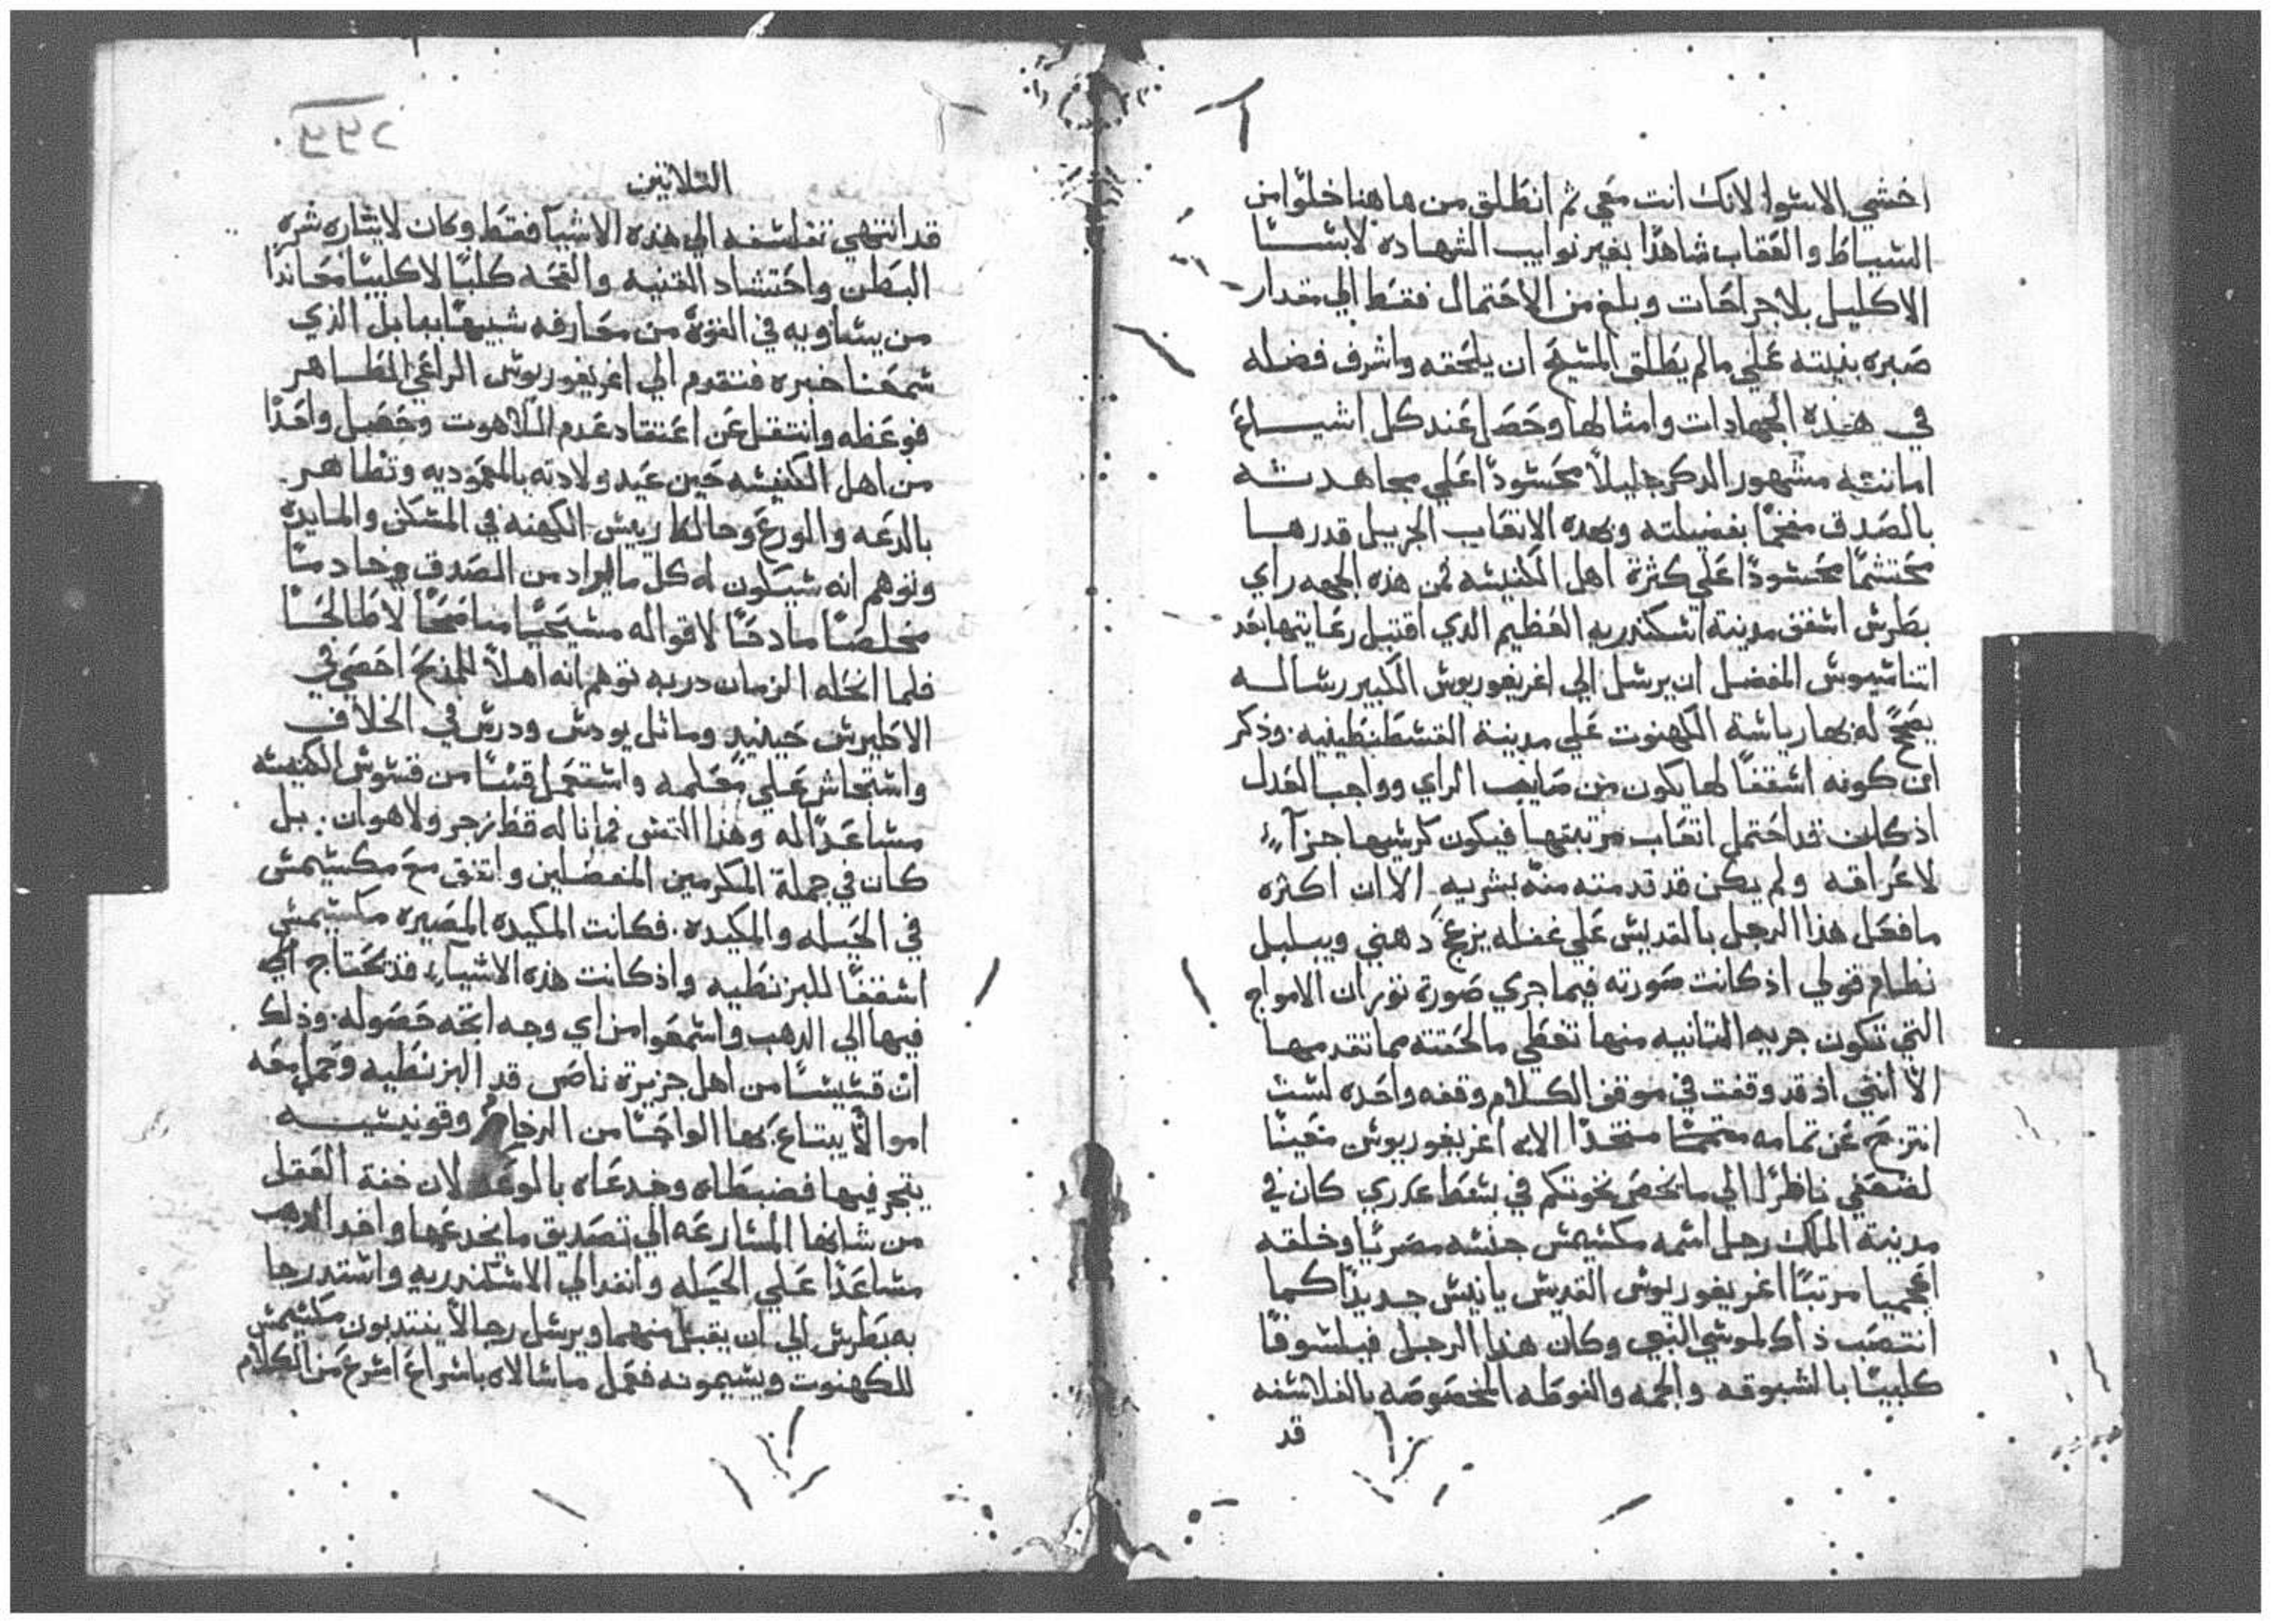 اخشي الاسوا لانك انت معي ثم انطلق من هاهنا خلوا من
السياط والعقاب شاهدًا بغير نوايب الشهاده لابسا
الاكليل بلا جراحات وبلغ من الاحتمال فقط الي مقدار
صبره بنيته علي مالم يطلق المسيح ان يلحقه واشرف فضله
في هذه الجهادات وامثالها وحصل عند كل اشياع
امانته مشهور الدكر جليلاً محسودًا علي مجاهدته
بالصدق مفخمًا بفضيلته وبهده الاتعاب الجزيل قدرها
محتشمًا محسودًا علي كثرة اهل الكنيسه فمن هذه الجهه راي
بطرس اسقف مدينة اسكندريه العظيم الدي اقتبل رعايتها بعد
اتناسيوس المفضل ان يرسل الي اغريغوريوس الكبير رساله
يصحح له بها رياسة الكهنوت علي مدينة القسطنطينيه. وذكر
ان كونه اسقفًا لها يكون من صايب الراي وواجب العدل
اذ كان قد احتمل اتعاب مرتبتها فيكون كرسيها جزآءً
لاعراقه ولم يكن قد تدمته منه بشريه. الا ان اكثره
مافعل هذا الرجل بالقديس علي غفله يزعج دهني ويبلبل
نظام قولي اذ كانت صورته فيما جري صورة توران الامواج
التي تكون جريه التانيه منها تغطي مالحقته مما تقدمها
الا انني اذ قد وقفت في موقف الكلام وقفه واحده لست
انتزح عن تمامه متخدًا الاب اغريغوريوس معينًا
لضعفي ناظرًا الي مايخص نحوتكم في بسط عدري كان في
مدينة الملك رجل اسمه مكسيمس جنسه مصريًا وخلقه
اعجميا مرتبًا اغريغوريوس القديس يانيس جديدًا كما
انتصب ذاك لموسي النبي وكان هذا الرجل فيلسوفًا
كلبيًا بالشبوقه والجمه والفوطه المخصوصه بالفلاسفه
قد
التلاتين
قد انتهي تفلسفه الي هذه الاشيآ فقط وكان لايساره شره
البطن واحتشاد القنيه والقحه كلبًا لاكلبيًا معاندًا
من يساويه في القوة من معارفه شبيهًا بهابل الذي
سمعنا خبره فتقدم الي اغريغوريوس الراعي الطاهر
فوعظه وانتقل عن اعتقاد عدم اللاهوت وحصل واحدًا
من اهل الكنيسه حين عيد ولادته بالمعموديه وتظاهر
بالدعه والورع وخالط ريس الكهنه في المسكن والمايده
وتوهم انه سيكون له كل مايراد من الصدق وخادمًا
مخلصًا مادحًا لاقواله مسيحيًا مسامحًا لاطالحًا
فلما انحله الزمان دربه توهم انه اهلاً للمذبح احصي في
الاكليرس حينيد وماتل يودس ودرس في الخلاف
واستجاش علي معلمه واستعمل قسًا من قسوس الكنيسه
مساعدًا له وهذا القس فما ناله قط زجر ولاهوان. بل
كان في جملة المكرمين المفضلين واتفق مع مكسيمس
في الحيله والمكيده. فكانت المكيده المصيره مكسيمس
اسقفًا للبزنطيه واذ كانت هذه الاشيآء قد تحتاج الي
فيها الي الدهب واسمعوا من اي وجه اتجه حصوله. وذلك
ان قسيسًا من اهل جزيرة ناصس قد البزنطيه وحمل معه
اموالاً يبتاع بها الواحًا من الرخام وقونيسيه
يتجر فيها فضبطاه وخدعاه بالوعد لان خفة العقل
من شانها المسارعه الي تصديق مايخدعها واخد الدهب
مساعدًا علي الحيله وانفدالي الاسكندريه واستدرجا
به بطرس الي ان يقبل منهما ويرسل رجالاً ينتدبون مكسيمس
للكهنوت ويسيمونه فعمل ماسالاه باسراع اسرع من الكلام